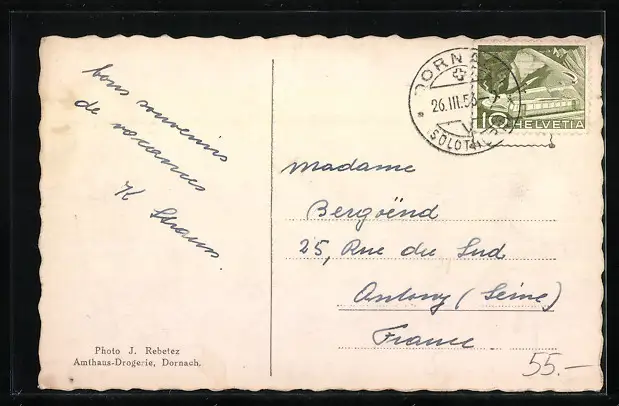 bons souvenirs
de vacances
K Straus.
DORNACH
26.III.56
(SOLOTHURN)
10 HELVETIA
Madame
Bergoënd
25, Rue du Sud
Antony (Seine)
France
Photo J. Rebetez
Amthaus-Drogerie, Dornach.
55.—